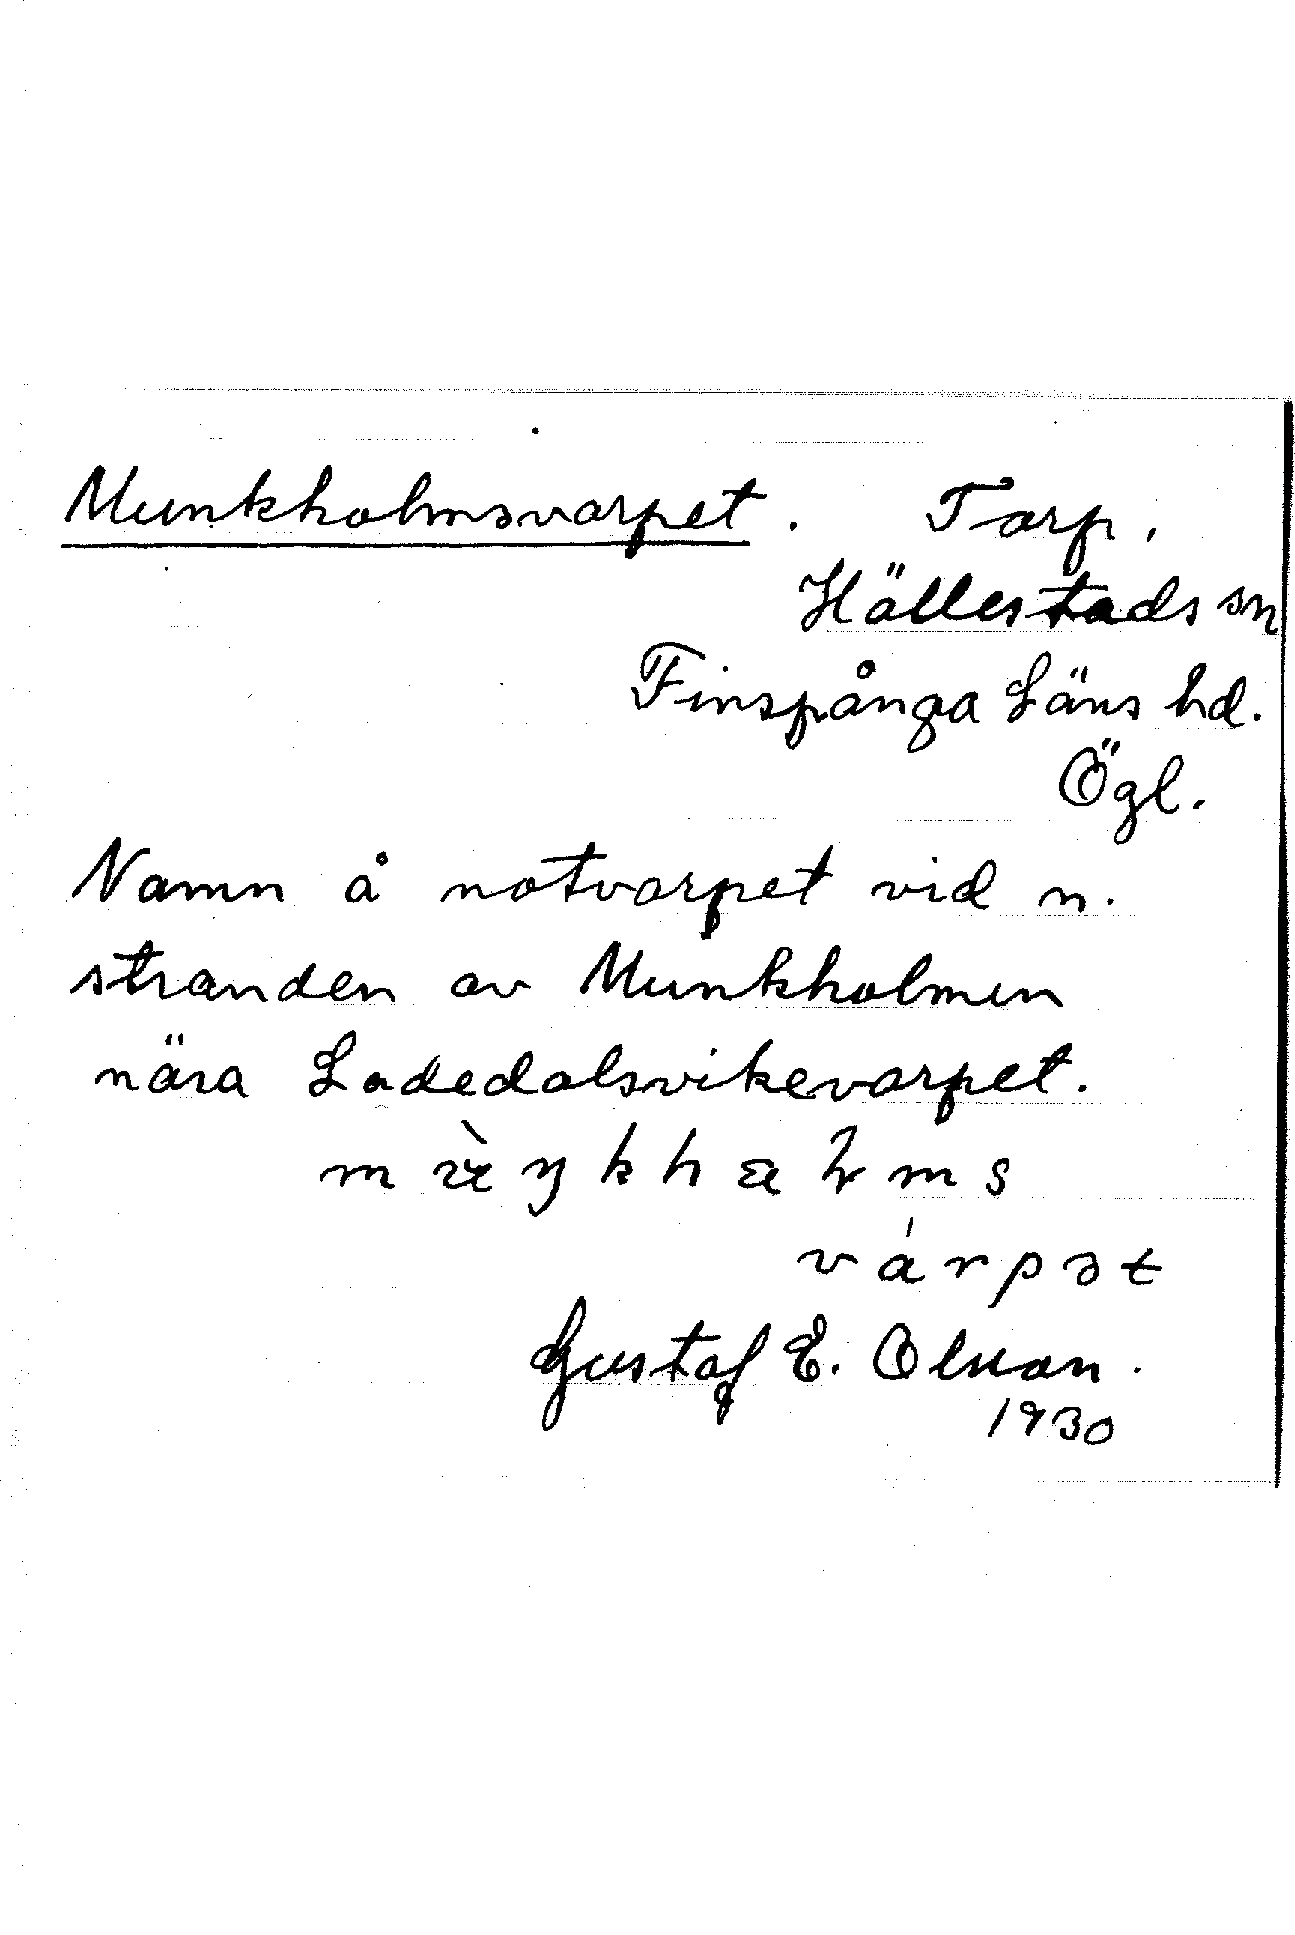 Munkholmsvarpet. Torp,
Hällestads sn
Finspånga Läns hd.
Ögl.
Namn å notvarpet vid n.
stranden av Munkholmen
nära Ladedalsvikevarpet.
várpət
Gustaf E. Olsson.
1930